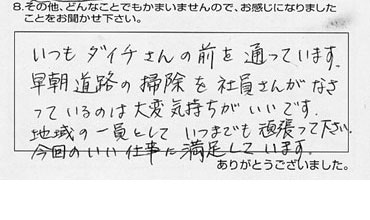 8.その他、どんなことでもかまいませんので、お感じになりました
ことをお聞かせ下さい。
いつもダイチさんの前を通っています。
早朝道路の掃除を社員さんがなさ
っているのは大変気持ちがいいです。
地域の一員としていつまでも頑張って下さい。
今回のいい仕事に満足しています。
ありがとうございました。